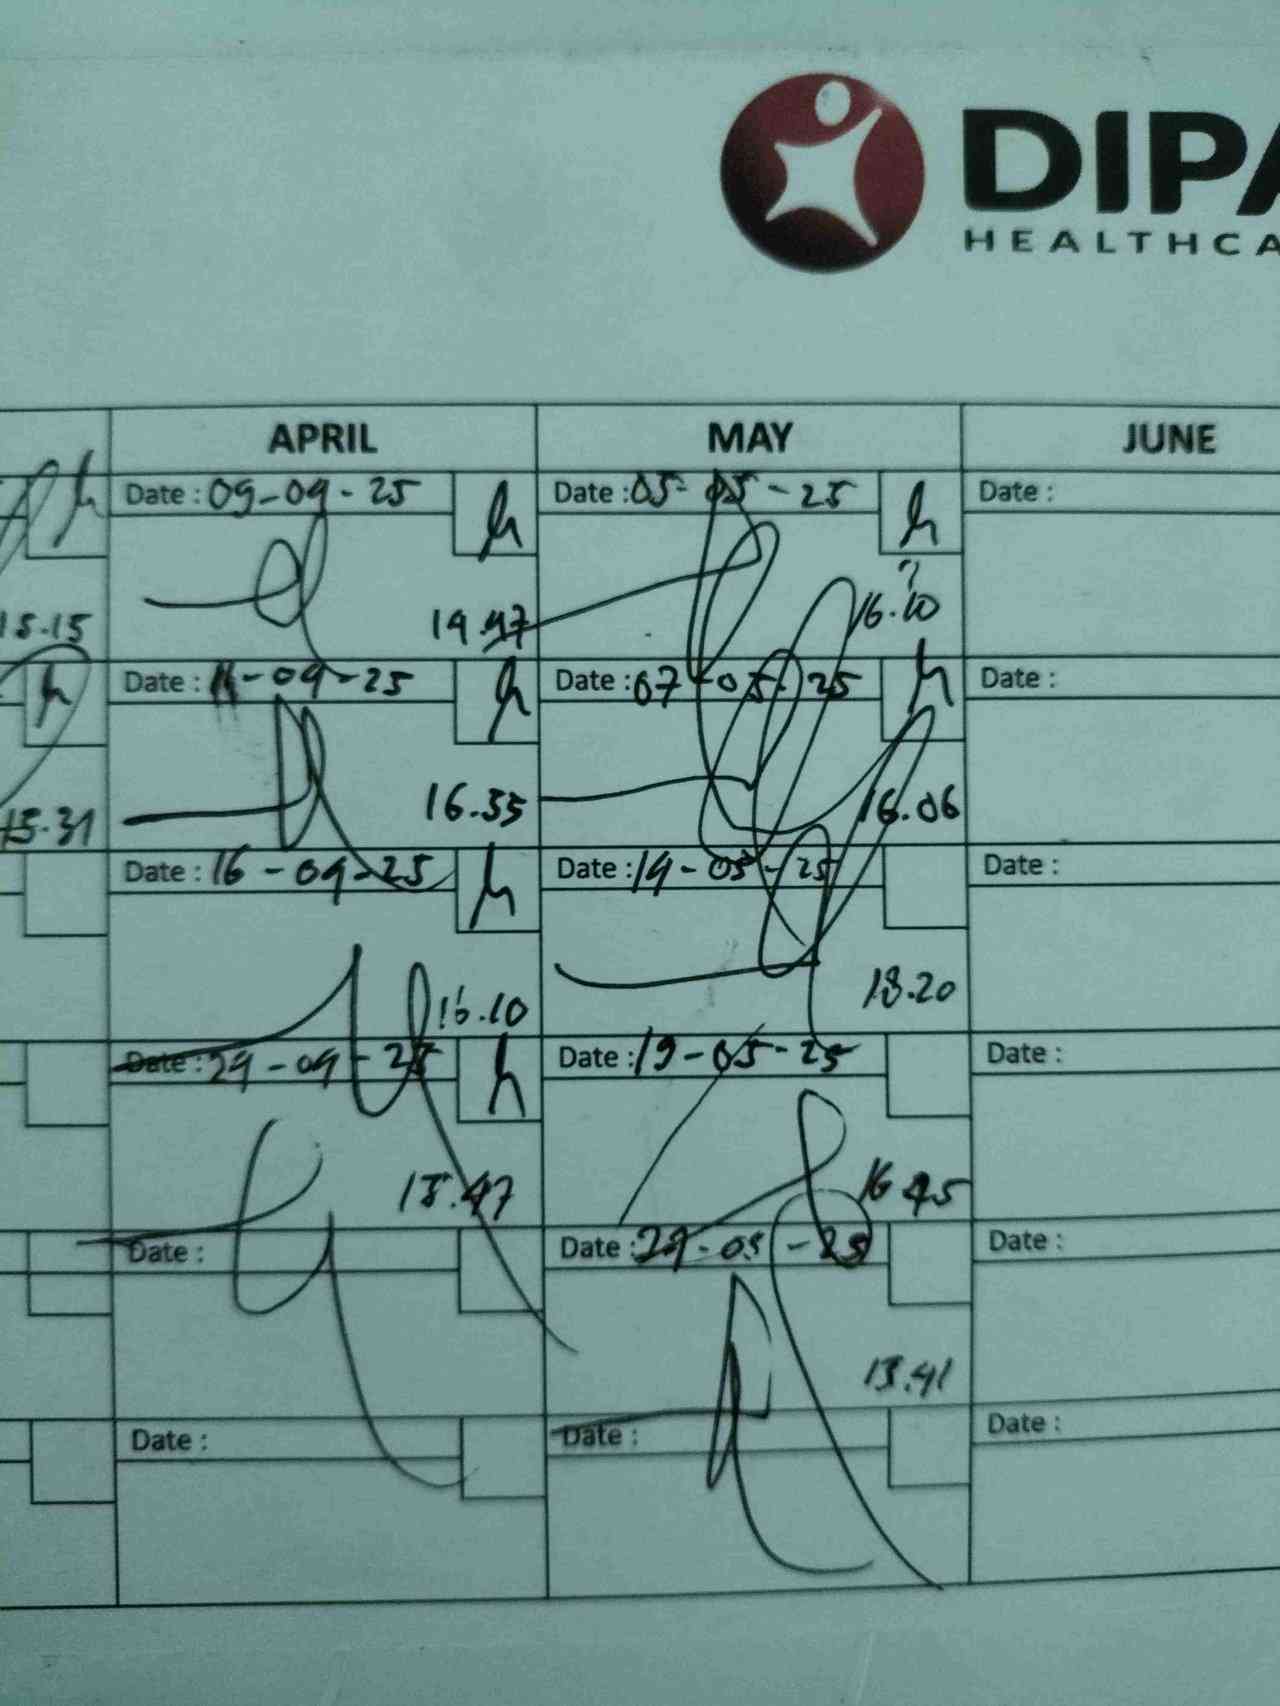 DIPA
HEALTHCA
APRIL MAY JUNE
Date : 09-04-25 Date : 05-05-25 Date :
15.15 14.47 16.10
Date : 11-04-25 Date : 07-05-25 Date :
15.31 16.35 16.06
Date : 16-04-25 Date : 14-05-25 Date :
16.10 18.20
Date : 24-04-25 Date : 19-05-25 Date :
15.47 16 45
Date : Date : 27-05-25 Date :
13.41
Date : Date : Date :